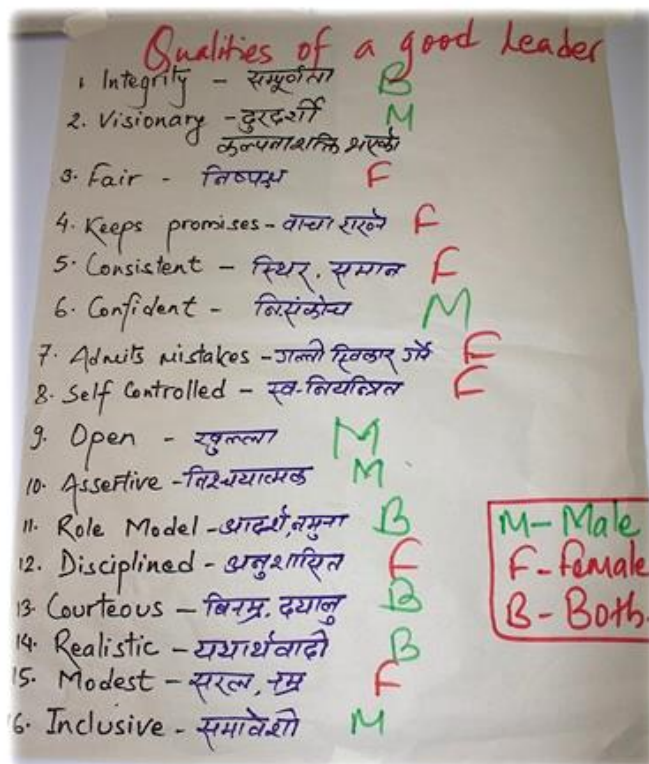 Qualities of a good Leader
1. Integrity - सम्पूर्णता B
2. Visionary - दुरदर्शी M
कल्पनाशक्ति भएको
3. Fair - निष्पक्ष F
4. Keeps promises - वाचा राख्ने F
5. Consistent - स्थिर, समान F
6. Confident - निसंकोच M
7. Admits mistakes - गल्ती स्विकार गर्ने F
8. Self Controlled - स्व-नियन्त्रित F
9. Open - खुल्ला M
10. Assertive - निश्चयात्मक M
11. Role Model - आदर्श, नमुना B
12. Disciplined - अनुशासित F
13. Courteous - बिनम्र, दयालु B
14. Realistic - यथार्थवादी B
15. Modest - सरल, नम्र F
16. Inclusive - समावेशी M
M - Male
F - Female
B - Both.